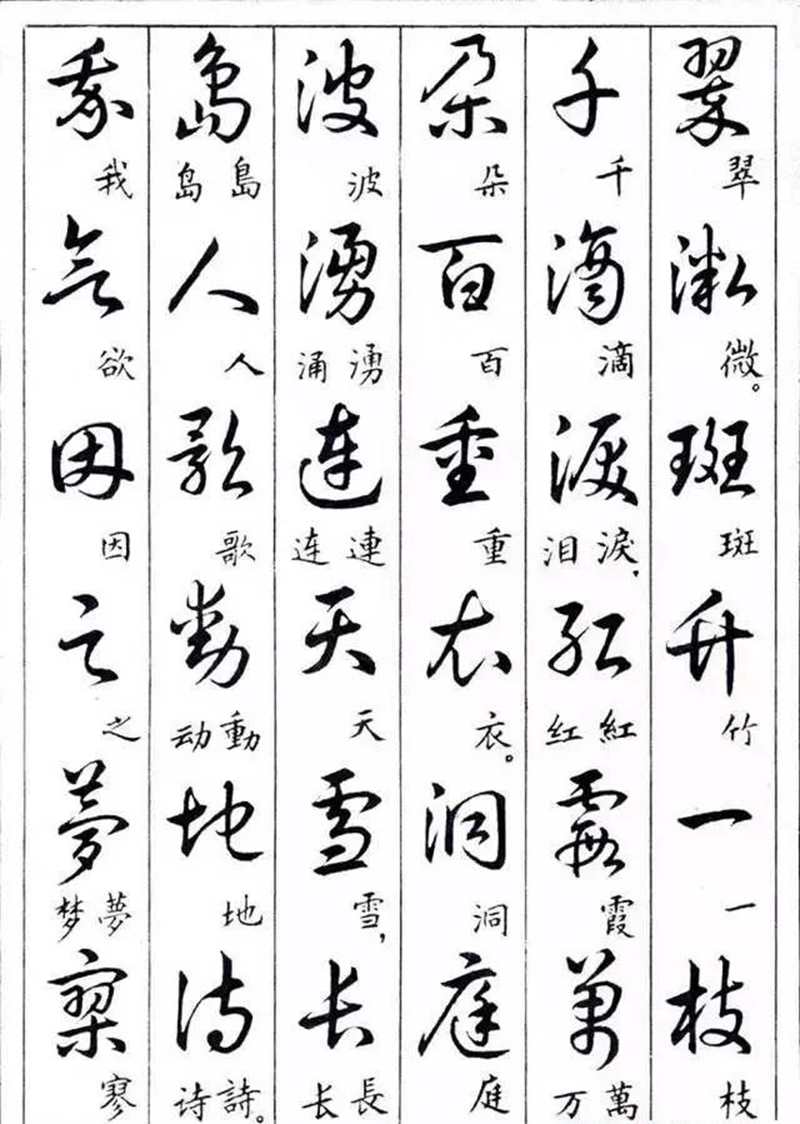 翠 翠 微 微。 斑 斑 竹 竹 一 一 枝 枝
千 千 滴 滴 淚 淚, 泪 紅 紅 红 霞 霞 萬 萬 万
朵 朵 百 百 重 重 衣 衣。 洞 洞 庭 庭
波 波 湧 湧 涌 連 連 连 天 天 雪 雪, 長 長 长
島 島 岛 人 人 歌 歌 動 動 动 地 地 詩 詩。 诗
我 我 欲 欲 因 因 之 之 夢 夢 梦 寥 寥